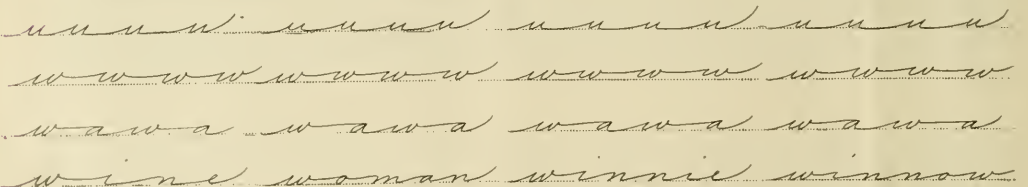 u u u u u u u u u u u u u u u u
w w w w w w w w w w w w w w w w
w a w a w a w a w a w a w a w a
wine woman winnie winnow